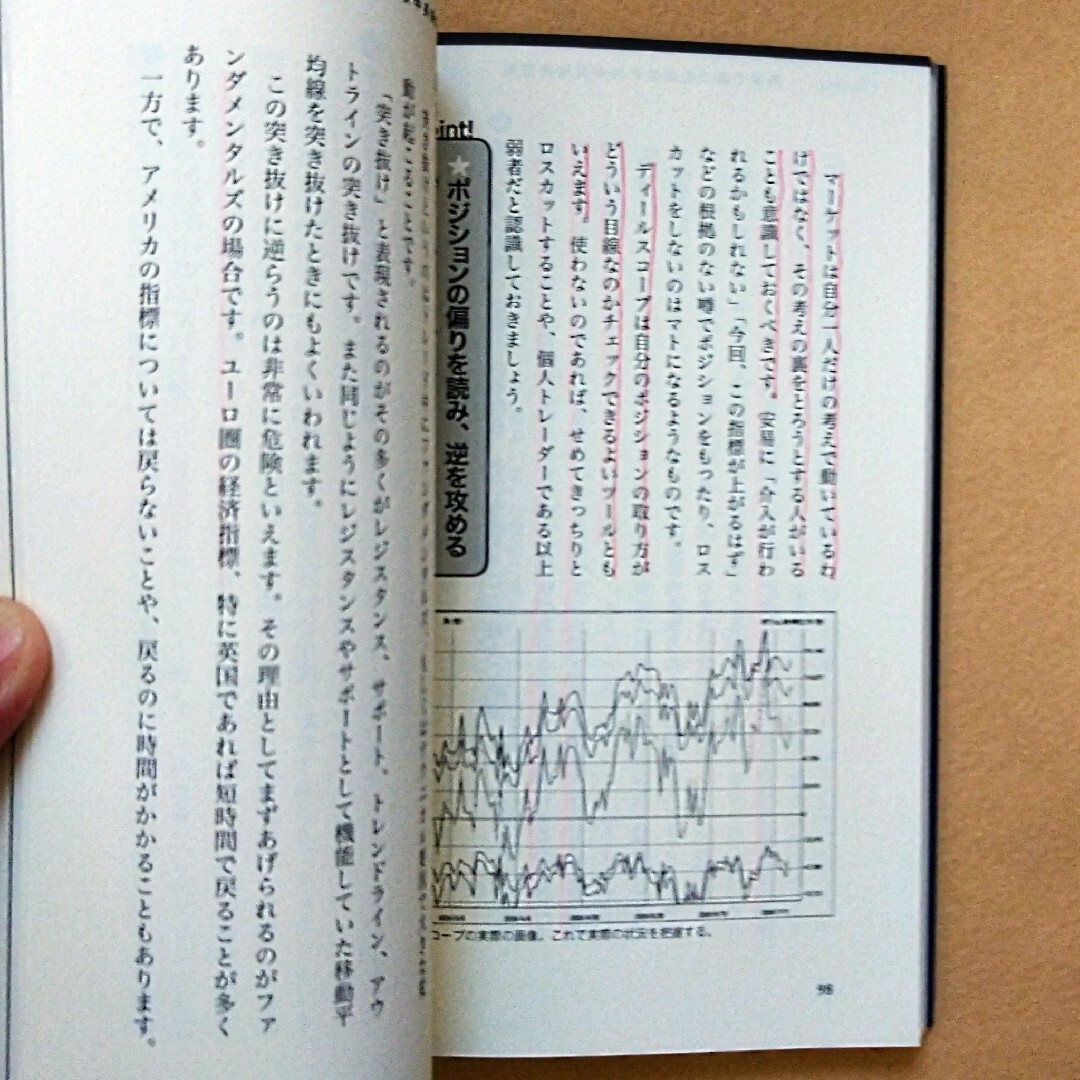 マーケットは自分一人だけの考えで動いているわ
けではなく、その考えの裏をとろうとする人がいる
ことも意識しておくべきです。安易に「介入が行わ
れるかもしれない」「今回、この指標が上がるはず」
などの根拠のない噂でポジションをもったり、ロス
カットをしないのはマトになるようなものです。
ディールスコープは自分のポジションの取り方が
どういう目線なのかチェックできるよいツールとも
いえます。使わないのであれば、せめてきっちりと
ロスカットすることや、個人トレーダーである以上
弱者だと認識しておきましょう。
int!
★ポジションの偏りを読み、逆を攻める
コープの実際の画像。これで実際の状況を把握する。
98
動が起こることです。
「突き抜け」と表現されるのがその多くがレジスタンス、サポート、トレンドライン、アウ
トラインの突き抜けです。また同じようにレジスタンスやサポートとして機能していた移動平
均線を突き抜けたときにもよくいわれます。
この突き抜けに逆らうのは非常に危険といえます。その理由としてまずあげられるのがファ
ンダメンタルズの場合です。ユーロ圏の経済指標、特に英国であれば短時間で戻ることが多く
あります。
一方で、アメリカの指標については戻らないことや、戻るのに時間がかかることもあります。